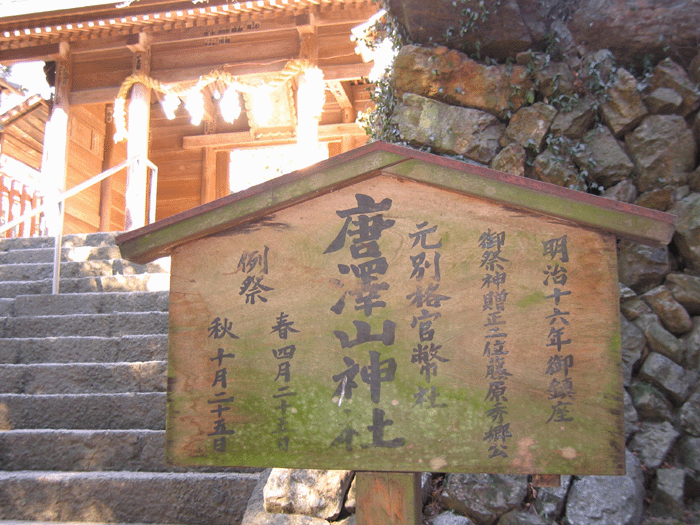 明治十六年御鎮座
御祭神贈正二位藤原秀郷公
元別格官幣社
唐澤山神社
例祭
春四月二十五日
秋十月二十五日